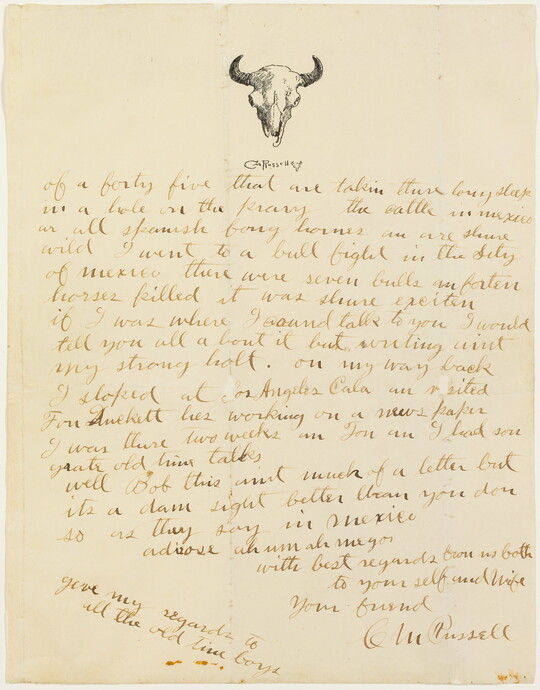 CMRussell
of a forty five that are takin there long sleep
in a hole on the prary the cattle in mexico
ar all spanish long hornes an are shure
wild I went to a bull fight in the Sity
of mexico there were seven bulls an forten
horses killed it was shure exciten
if I was where I cound talk to you I would
tell you all a bout it but writing aint
my strong holt. on my way back
I stoped at Los Angeles Cala an visited
Fon Luckett hes working on a news paper
I was there two weeks an Fon an I had som
grate old time talks
well Bob this aint much of a letter but
its a dam sight better than you don
so as they say in mexico
adiose ah um ah megos
with best regards from us both
to your self and Wife
Your friend
CM Russell
give my regards to
all the old time boys